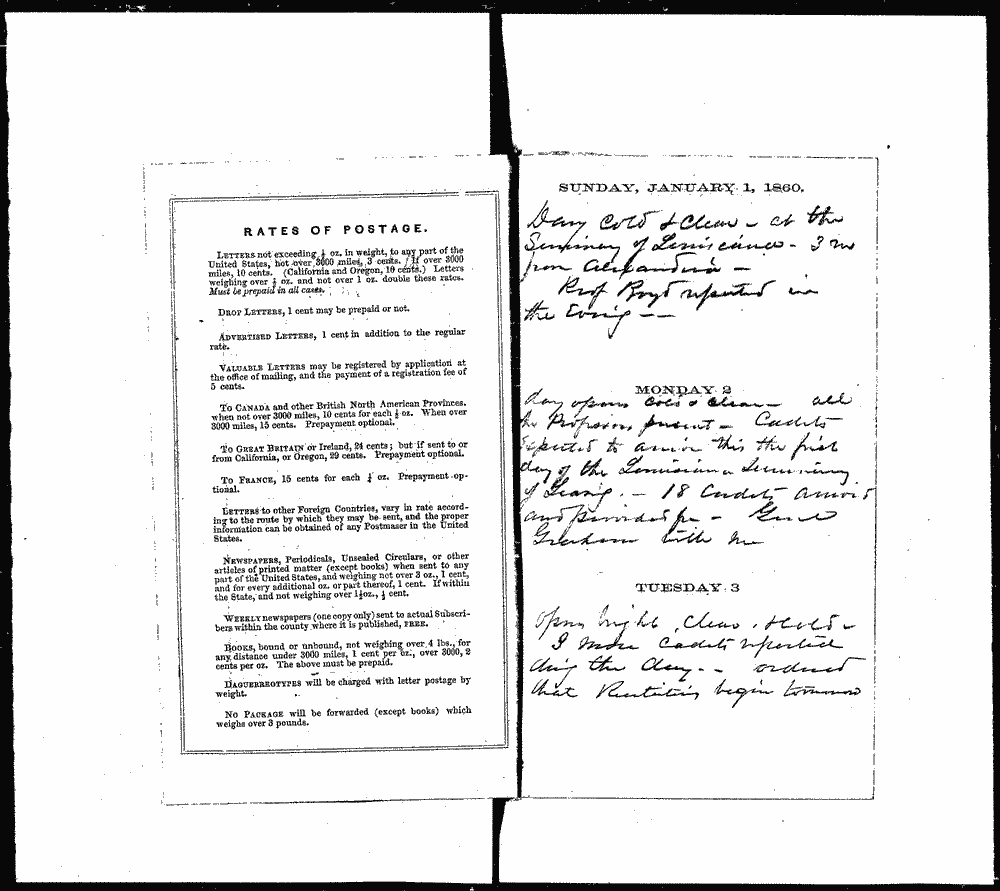 RATES OF POSTAGE.
LETTERS not exceeding ½ oz. in weight, to any part of the
United States, not over 3000 miles, 3 cents. If over 3000
miles, 10 cents. (California and Oregon, 10 cents.) Letters
weighing over ½ oz. and not over 1 oz. double these rates.
Must be prepaid in all cases.
DROP LETTERS, 1 cent may be prepaid or not.
ADVERTISED LETTERS, 1 cent in addition to the regular
rate.
VALUABLE LETTERS may be registered by application at
the office of mailing, and the payment of a registration fee of
5 cents.
To CANADA and other British North American Provinces.
when not over 3000 miles, 10 cents for each ½ oz. When over
3000 miles, 15 cents. Prepayment optional.
To GREAT BRITAIN or Ireland, 24 cents; but if sent to or
from California, or Oregon, 29 cents. Prepayment optional.
To FRANCE, 15 cents for each ¼ oz. Prepayment op-
tional.
LETTERS to other Foreign Countries, vary in rate accord-
ing to the route by which they may be sent, and the proper
information can be obtained of any Postmaser in the United
States.
NEWSPAPERS, Periodicals, Unsealed Circulars, or other
articles of printed matter (except books) when sent to any
part of the United States, and weighing not over 3 oz., 1 cent,
and for every additional oz. or part thereof, 1 cent. If within
the State, and not weighing over 1½oz., ½ cent.
WEEKLY newspapers (one copy only) sent to actual Subscri-
bers within the county where it is published, FREE.
BOOKS, bound or unbound, not weighing over 4 lbs., for
any distance under 3000 miles, 1 cent per oz., over 3000, 2
cents per oz. The above must be prepaid.
DAGUERREOTYPES will be charged with letter postage by
weight.
NO PACKAGE will be forwarded (except books) which
weighs over 3 pounds.
SUNDAY, JANUARY 1, 1860.
Day Cold & Clear - at the
Seminary of Louisiana - 3 m
from Alexandria -
Prof Boyd reported in
the Evning --
MONDAY 2
day opens cold & clear - all
the Professors present - Cadets
expected to arrive this the first
day of the Louisiana Seminary
of Learng. - 18 Cadets arrivd
and provided for - Genl
Graham with me
TUESDAY 3
Opens bright, Clear, & Cold -
more Cadets reported
ding the day -- ordered
that Recitations begin tomorrow